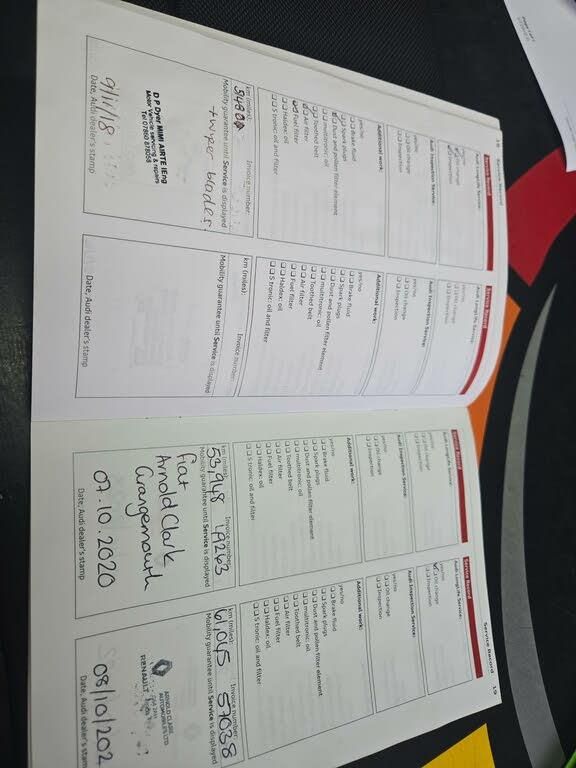 18 Service Record
Service Record
Audi LongLife Service:
yes/no
Oil change
Inspection
Audi Inspection Service:
yes/no
Oil change
Inspection
Additional work:
yes/no
Brake fluid
Spark plugs
Dust and pollen filter element
multitronic: oil
Toothed belt
Air filter
Fuel filter
Haldex: oil
S tronic: oil and filter
km (miles):
Invoice number:
Mobility guarantee until Service is displayed
+ wiper blades
D P Dyer MIMI AIRTE IEng
Motor Vehicle servicing & repairs
Tel 07860 878058
Date, Audi dealer's stamp
Service Record
Audi LongLife Service:
yes/no
Oil change
Inspection
Audi Inspection Service:
yes/no
Oil change
Inspection
Additional work:
yes/no
Brake fluid
Spark plugs
Dust and pollen filter element
multitronic: oil
Toothed belt
Air filter
Fuel filter
Haldex: oil
S tronic: oil and filter
km (miles):
Invoice number:
Mobility guarantee until Service is displayed
Date, Audi dealer's stamp
Service Record
Audi LongLife Service:
yes/no
Oil change
Inspection
Audi Inspection Service:
yes/no
Oil change
Inspection
Additional work:
yes/no
Brake fluid
Spark plugs
Dust and pollen filter element
multitronic: oil
Toothed belt
Air filter
Fuel filter
Haldex: oil
S tronic: oil and filter
km (miles):
Invoice number:
53,948 19263
Mobility guarantee until Service is displayed
Fiat
Arnold Clark
Grangemouth
07.10.2020
Date, Audi dealer's stamp
Service Record 19
Service Record
Audi LongLife Service:
yes/no
Oil change
Inspection
Audi Inspection Service:
yes/no
Oil change
Inspection
Additional work:
yes/no
Brake fluid
Spark plugs
Dust and pollen filter element
multitronic: oil
Toothed belt
Air filter
Fuel filter
Haldex: oil
S tronic: oil and filter
km (miles):
Invoice number:
61,045 57038
Mobility guarantee until Service is displayed
ARNOLD CLARK
AUTOMOBILES LTD
RENAULT
08/10/202
Date, Audi dealer's stamp